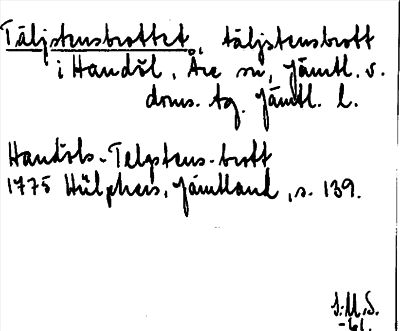 Täljstensbrottet, täljstensbrott
i Handöl, Åre sn, Jämtl. v.
doms. tg. Jämtl. l.
Handöls-Telgstens-brott
1775 Hülphers, Jämtland, s. 139.
S.M.S.
-61.